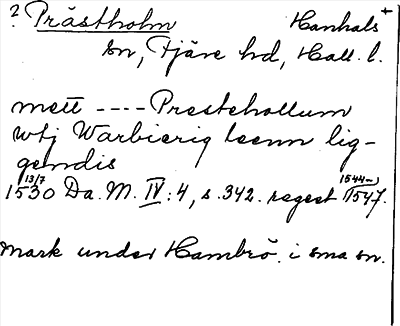 ? Prästholm Hanhals +
sn, Fjäre hd, Hall. l.
mett ---- Prestehollum
wtj Warbierig leenn lig-
gendis
13/7 1530 Da. M. IV: 4, s. 342. regest 1544-1547.
mark under Hambrö i sma sn.